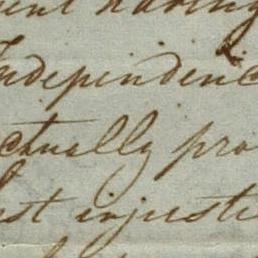 ent having
Independenc
ctually pro
st injusti